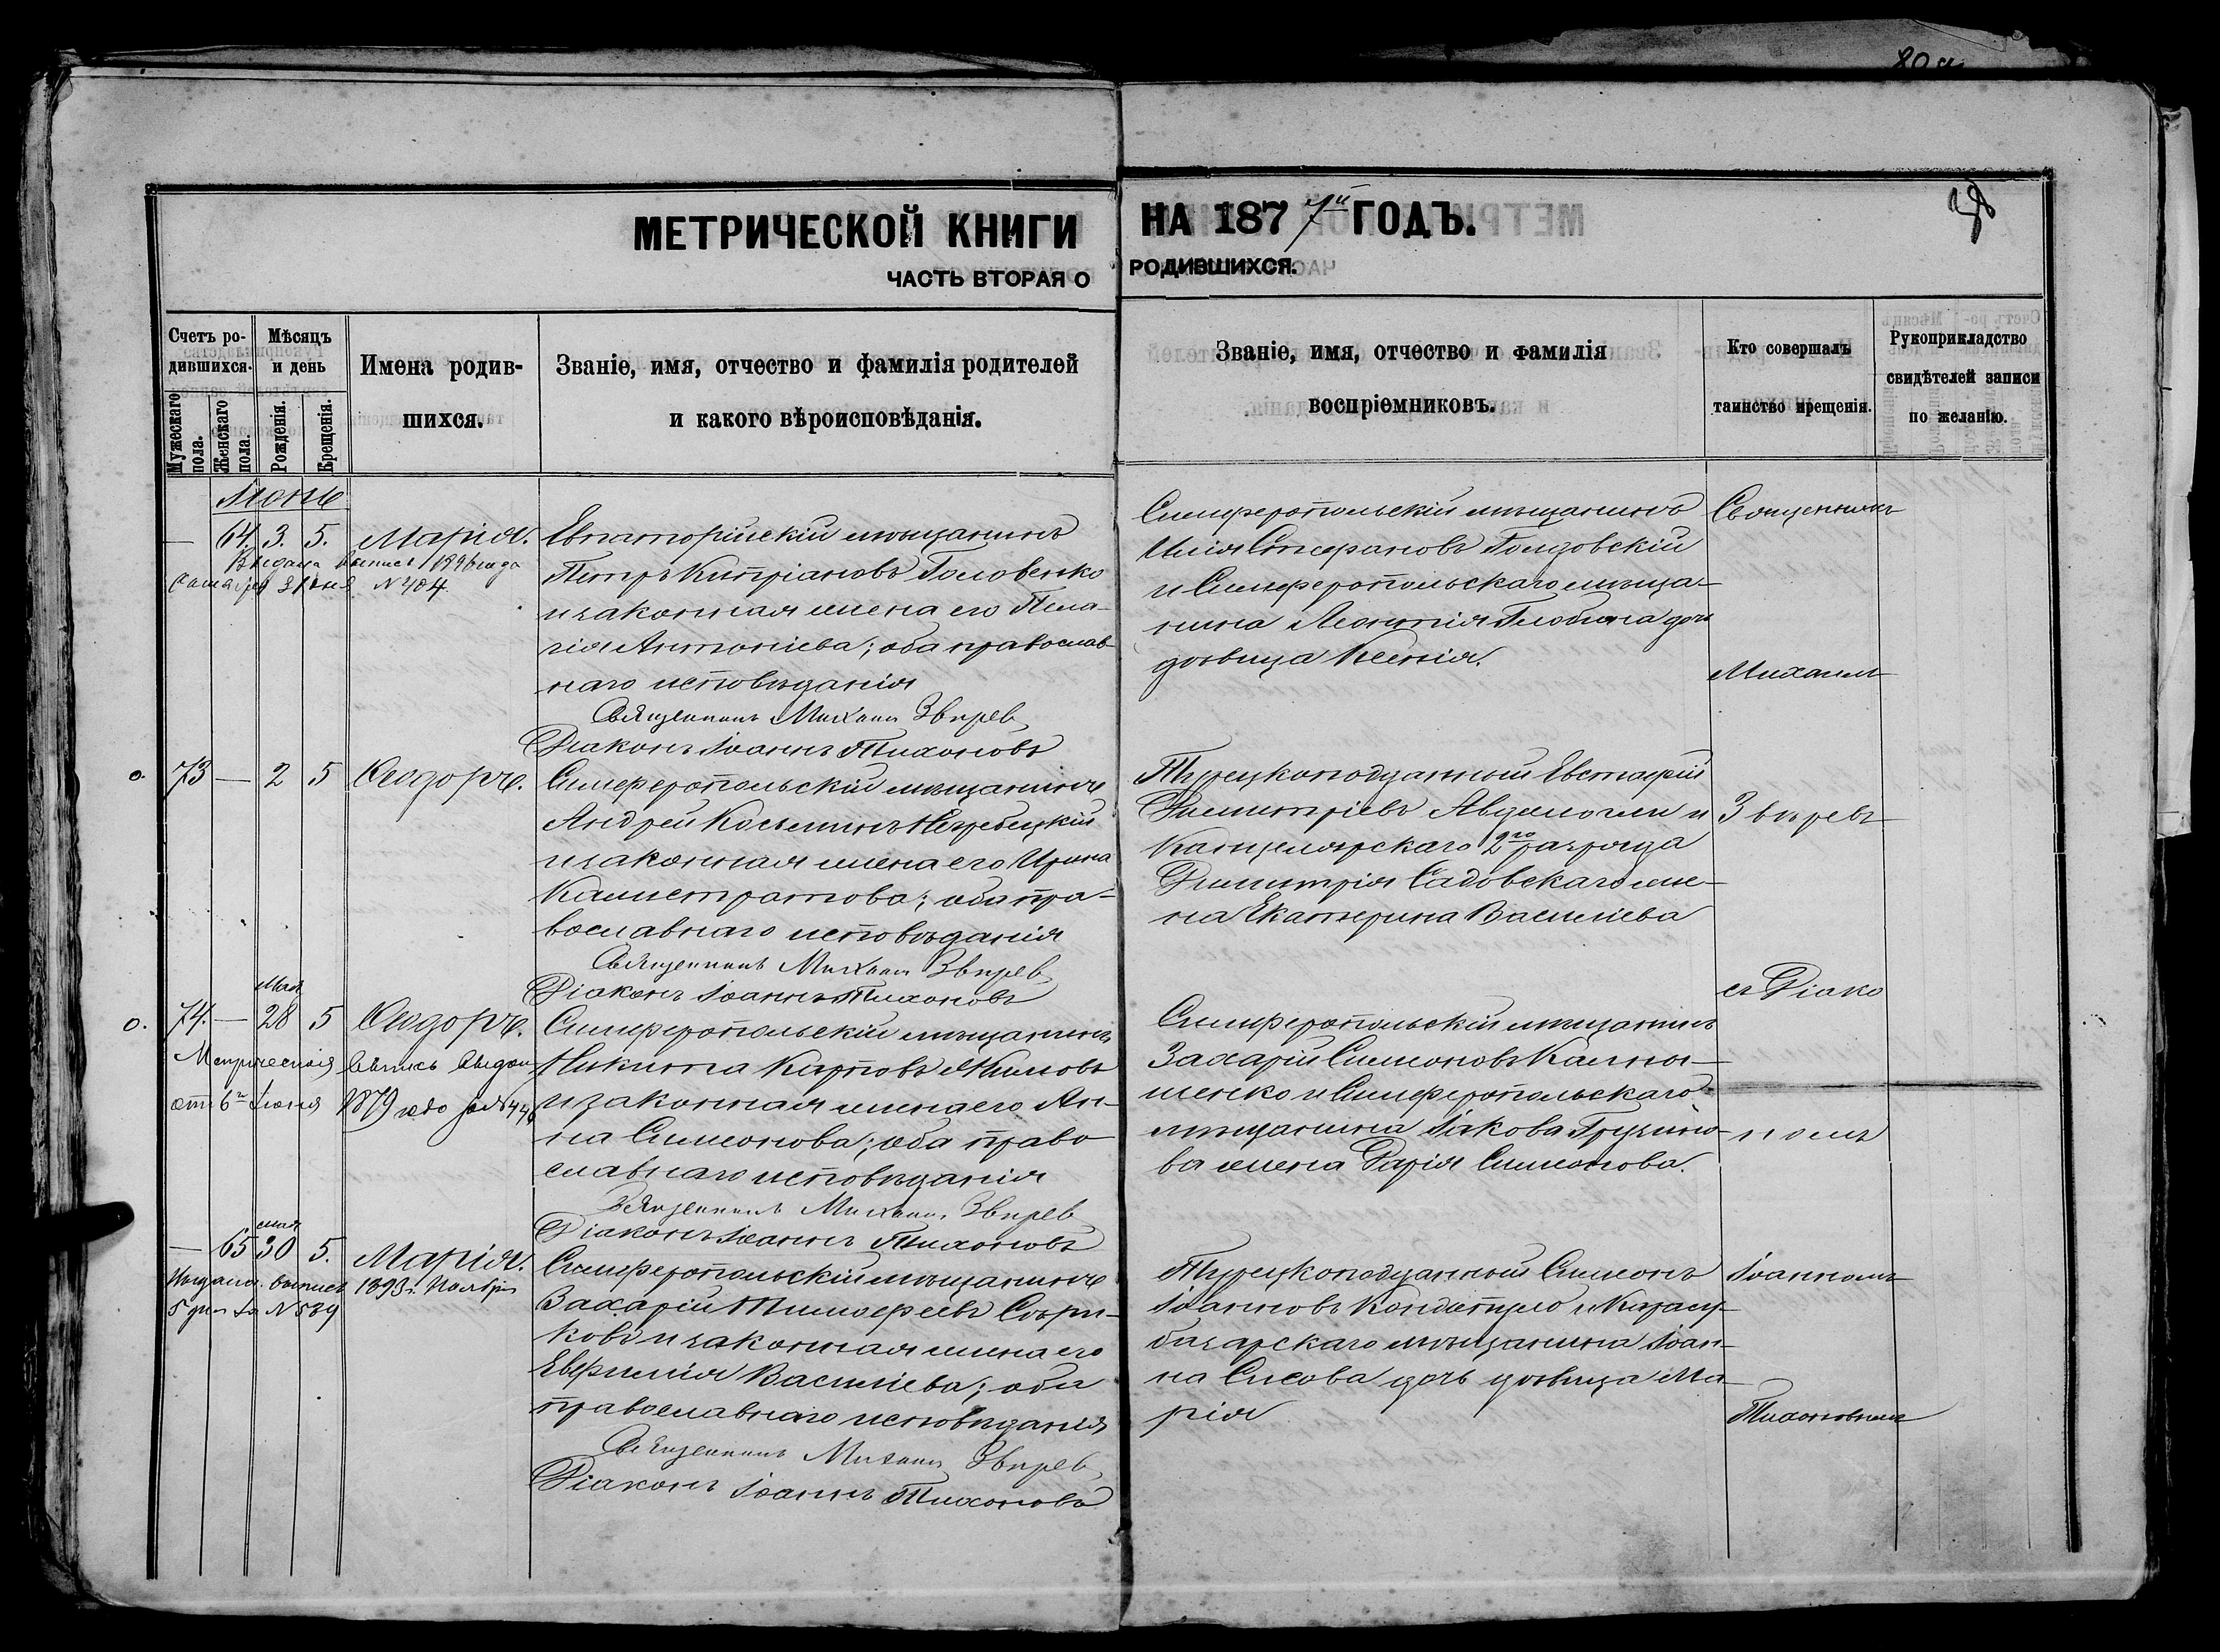 МЕТРИЧЕСКОЙ КНИГИ НА 1877й ГОДЪ.
ЧАСТЬ ВТОРАЯ О РОДИВШИХСЯ.
Счетъ ро-
дившихся.
Мужескаго пола.
Женскаго пола.
Мѣсяцъ
и день
Рожденія.
Крещенія.
Имена родив-
шихся.
Званіе, имя, отчество и фамилія родителей
и какого вѣроисповѣданія.
Званіе, имя, отчество и фамилія
воспріемниковъ.
Кто совершалъ
таинство крещенія.
Рукоприкладство
свидѣтелей записи
по желанію.
Іюнь
— 64. 3. 5. Марія.
Выдана выпись
№ 404
Евпаторійскій мѣщанинъ
Петръ Кипріановъ Головенко
и законная жена его Пела-
гія Антоніева; оба православ-
наго исповѣданія
Священникъ Михаилъ Звѣрев
Діаконъ Іоаннъ Тихоновъ
Симферопольскій мѣщанинъ
Илія Стефановъ
и Симферопольскаго мѣща-
нина Леонтія дочь
дѣвица Ксенія.
73 — 2 5 Ѳеодоръ.
Симферопольскій мѣщанинъ
Андрей Косьминъ
и законная жена его Ирина
Каллистратова; оба пра-
вославнаго исповѣданія
Священникъ Михаилъ Звѣрев
Діаконъ Іоаннъ Тихоновъ
Турецкоподданный Евстафій
Димитріевъ и
Канцелярскаго 2го разряда
Димитрія Садовскаго же-
на Екатерина Василіева
74. — мая 28 5 Ѳеодоръ.
Метрическая выпись выдана
отъ 6го Іюня 1879 года
Симферопольскій мѣщанинъ
Никита Карповъ
и законная жена его Ан-
на Симонова; оба право
славнаго исповѣданія
Священникъ Михаилъ Звѣрев
Діаконъ Іоаннъ Тихоновъ
Симферопольскій мѣщанинъ
Захарій Симоновъ
и Симферопольскаго
мѣщанина Іакова Грузино-
ва жена Дарія Симонова.
— 65 мая 30 5. Марія.
Выдана выпись 1893г. Ноября
5 дня за № 539
Симферопольскій мѣщанинъ
Захарій Тимофеевъ
ковъ и законная жена его
Евфимія Василіева; оба
православнаго исповѣданія
Священникъ Михаилъ Звѣрев
Діаконъ Іоаннъ Тихоновъ
Турецкоподданный Симонъ
Іоанновъ и Карасу-
базарскаго мѣщанина Іоан-
на дочь дѣвица Ма-
рія
Священникъ
Михаилъ
Звѣревъ
съ Діако
номъ
Іоанномъ
Тихоновымъ